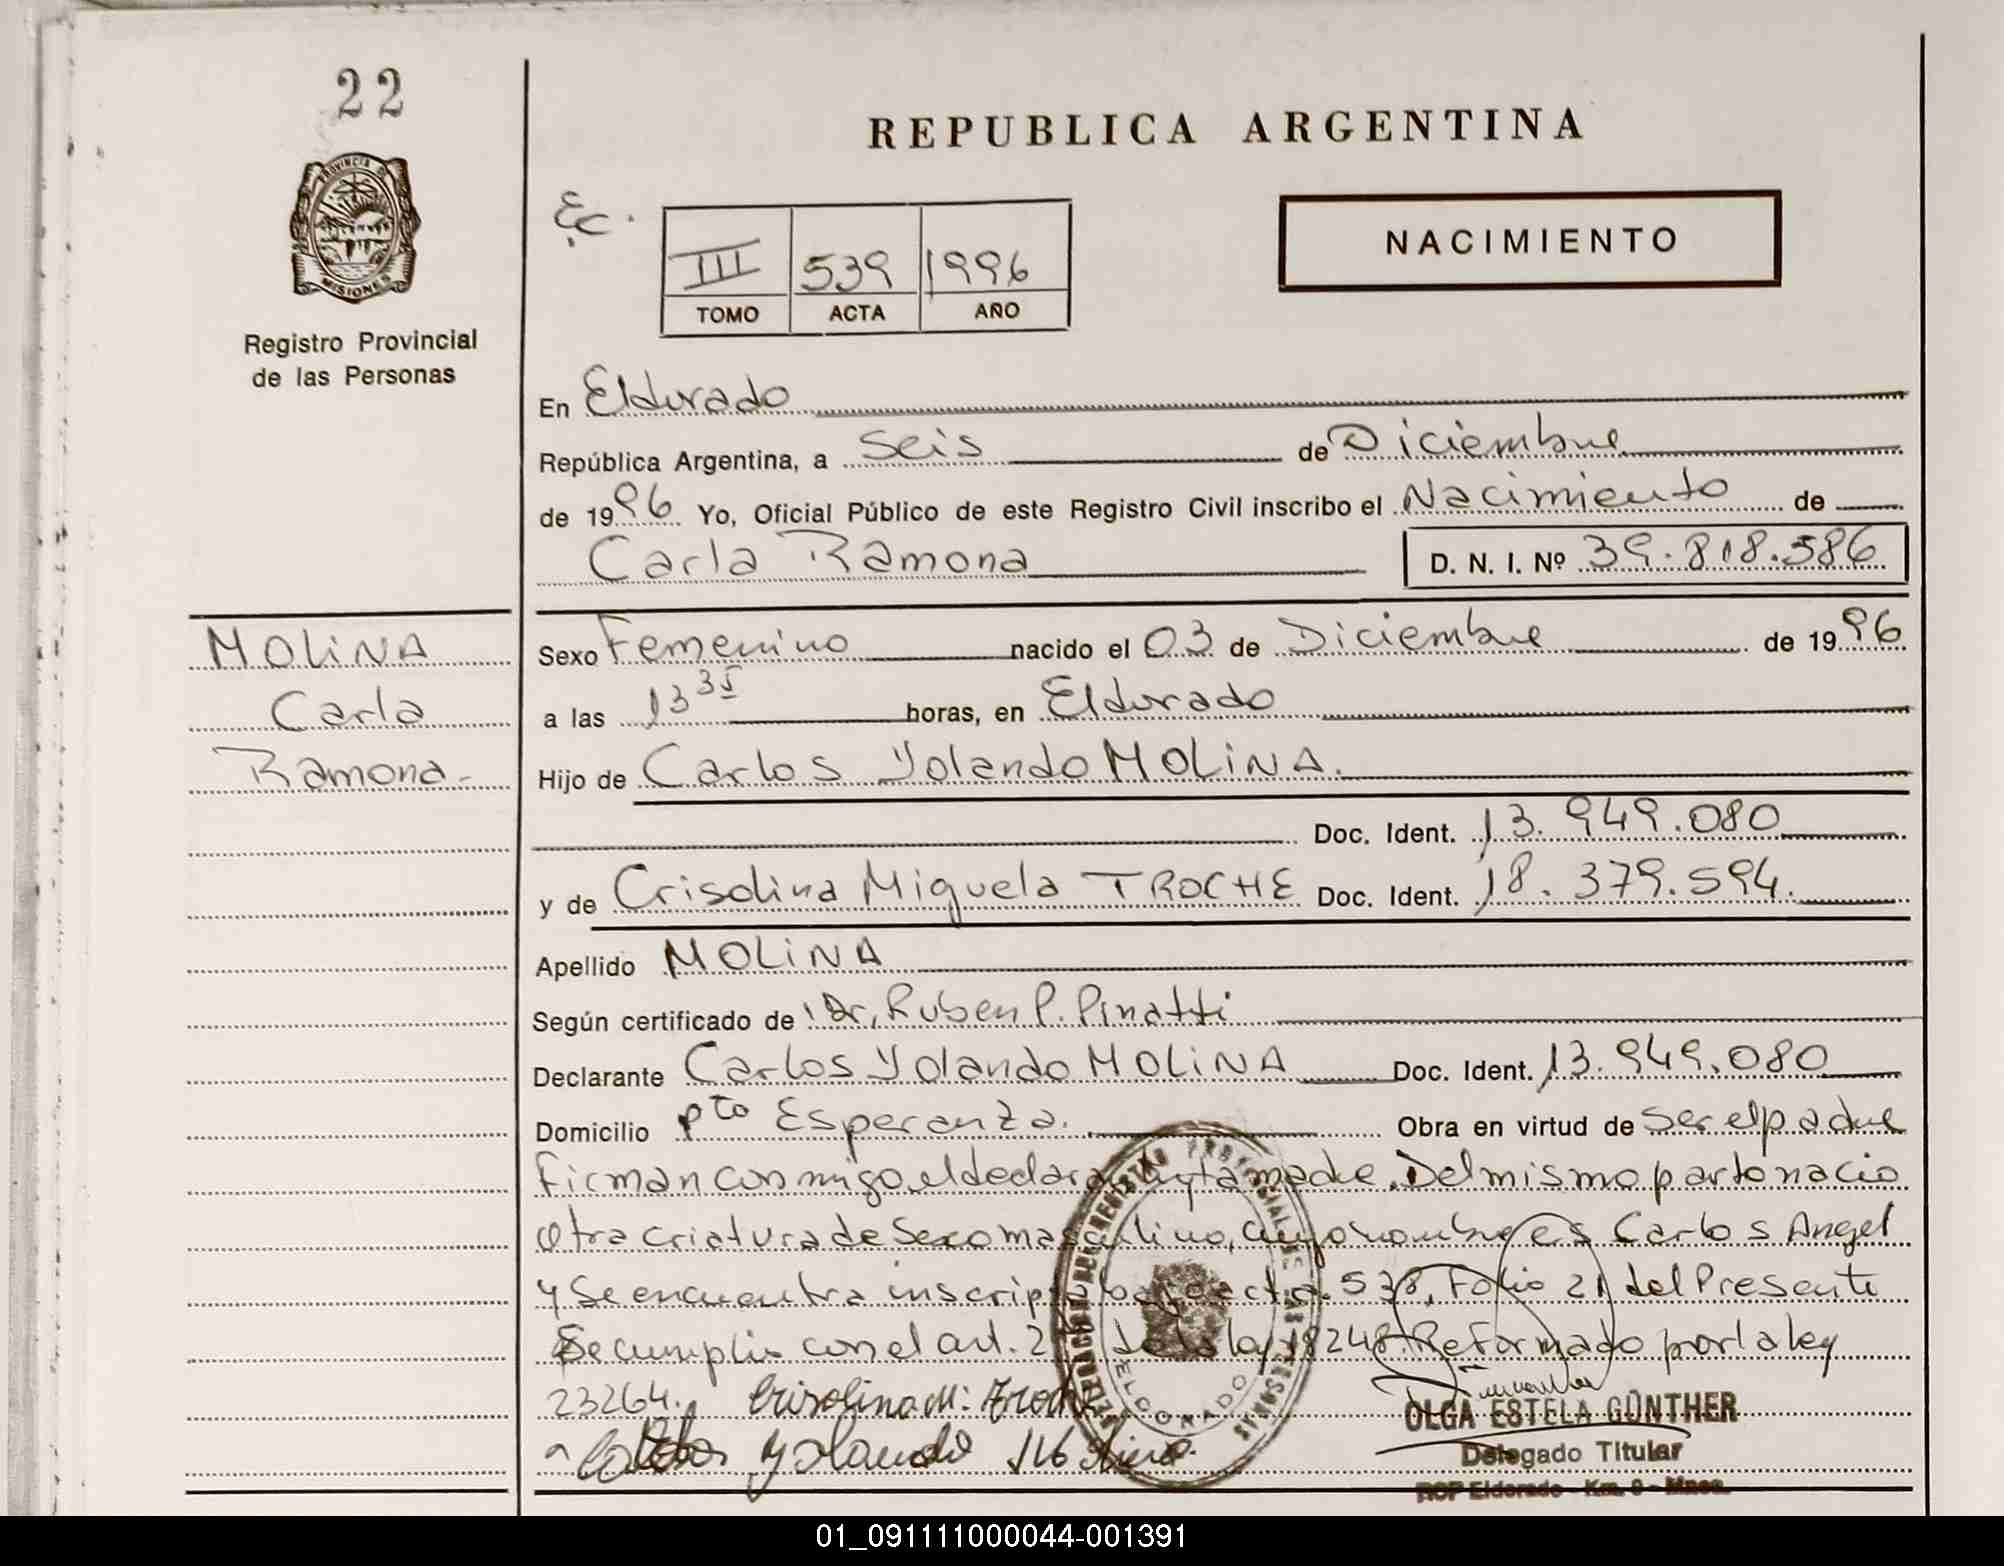 22
REPUBLICA ARGENTINA
PROVINCIA DE
MISIONES
Registro Provincial
de las Personas
III 539 1996
TOMO ACTA AÑO
NACIMIENTO
En Eldorado
República Argentina, a Seis de Diciembre
de 1996 Yo, Oficial Público de este Registro Civil inscribo el Nacimiento de
Carla Ramona D. N. I. Nº 39.818.586
MOLINA
Carla
Ramona.-
Sexo Femenino nacido el 03 de Diciembre de 1996
a las 13 35 horas, en Eldorado
Hijo de Carlos Yolando MOLINA.
Doc. Ident. 13.949.080
y de Crisolina Miguela TROCHE Doc. Ident. 18.379.594.
Apellido MOLINA
Según certificado de Dr. Ruben P. Pinatti
Declarante Carlos Yolando MOLINA Doc. Ident. 13.949.080
Domicilio Pto Esperanza. Obra en virtud de ser el padre
Firman conmigo el declarante y la madre. Del mismo parto nacio
otra criatura de sexo masculino, cuyo nombre es Carlos Angel
y se encuentra inscripto acta 538, Folio 21 del Presente
Se cumplio con el art. 2 de la ley 18248 Reformado por la ley
23264. Crisolina M: Troche
Carlos Yolando Molina.
ELDORADO
OLGA ESTELA GÜNTHER
Delegado Titular
RCP Eldorado - Km. 9 - Mnes.
01_091111000044-001391